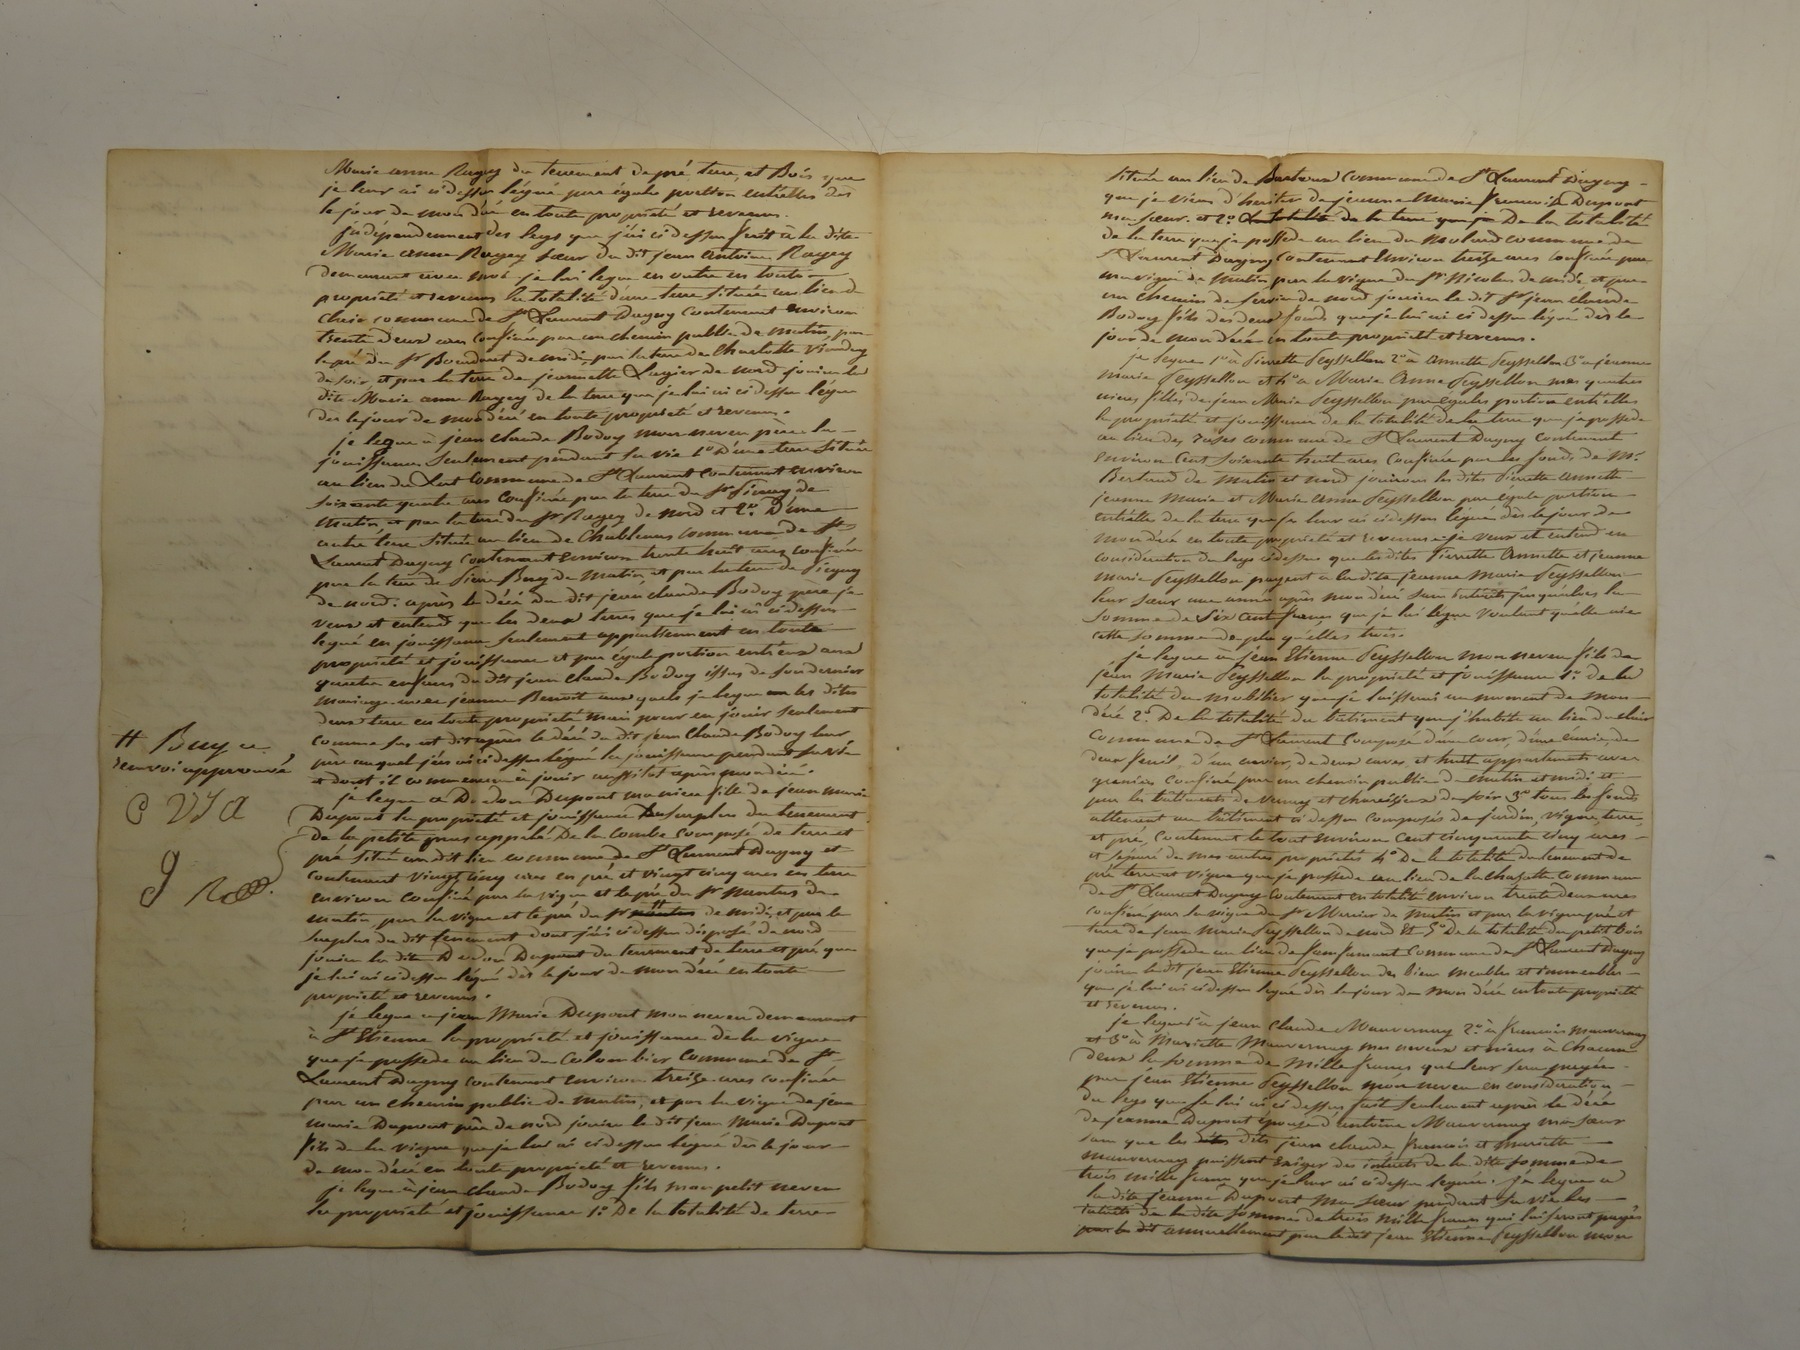 Marie anne Ragey du tenement de pré terre, et Bois que
je leur ai ci dessus légué par égale portion entr'elles dès
le jour de mon décé en toute propriété et revenus.
jndépendemment des legs que j'ai ci dessus fait à la dite
Marie anne Ragey sœur du dit jean antoine Ragey
demeurant avec moi je lui legue en outre en toute
propriété et revenus la totalité d'une terre située au lieu de
commune de St Laurent Dagny contenant environ
trente deux ares confinée par un chemin public de matin, par
le pré du Sr Bourdant de midi, par la terre de Charlotte
de soir, et par la terre de jeannette Lagier de nord jouira la
dite Marie anne Ragey de la terre que je lui ai ci dessus légué
dès le jour de mon décé en toute propriété et revenus.
je legue à jean Claude Bodoy mon neveu père la
jouissance seulement pendant sa vie 1o D'une terre située
au lieu du commune de St Laurent contenant environ
soixante quatre ares confinée par la terre du Sr de
matin, et par la terre du Sr Ragey de nord et 2o D'une
autre terre située au lieu de Chablenas commune de St
Laurent Dagny contenant environ trente huit ares confinée
par la terre de Pierre Buy de matin, et par la terre de
de nord. après le décé du dit jean claude Bodoy père je
veux et entend que les deux terres que je lui ai ci dessus
legué en jouissance seulement appartiennent en toute
propriété et jouissance et par égale portion entr'eux aux
quatre enfans du dit jean claude Bodoy issus de son dernier
mariage avec jeanne Benoit aux quels je legue les dites
deux terre en toute propriété mais pour en jouir seulement
comme sus est dit après le décé du dit jean Claude Bodoy leur
père auquel j'en ai ci dessus légué la jouissance pendant sa vie
et dont il commencera à jouir aussitot après mon décé.
je legue a Dupont ma niece fille de jean marie
Dupont la propriété et jouissance du surplus du tenement
de la petite appelé De la Combe composé de terre et
pré situé au dit lieu commune de St Laurent Dagny et
contenant vingt cinq ares en pré et vingt cinq ares en terre
environ confiné par la vigne et le pré du Sr de
matin, par la vigne et le pré du Sr # de midi, et par le
surplus du dit tenement dont j'ai ci dessus disposé de nord
jouira la dite Dupont du tenement de terre et pré que
je lui ai ci dessus légué dès le jour de mon décé en toute
propriété et revenus.
je legue a jean Marie Dupont mon neveu demeurant
à St Etienne la propriété et jouissance de la vigne
que je possede au lieu du Colombier commune de St
Laurent Dagny contenant environ treize ares confinée
par un chemin public de matin, et par la vigne de jean
marie Dupont père de nord jouira le dit jean Marie Dupont
fils de la vigne que je lui ai ci dessus légué dès le jour
de mon décé en toute propriété et revenus.
je legue à jean Claude Bodoy fils mon petit neveu
la propriété et jouissance 1o De la totalité de terre
# Buy ce
renvoi approuvé
situé au lieu de commune de St Laurent Dagny
que je viens d'heriter de jeanne Marie françoise Dupont
ma sœur. et 2o La totalité de la terre que je De la totalité
de la terre que je possede au lieu du Molard commune de
St Laurent Dagny contenant environ treize ares confinée par
ma vigne de matin par la vigne du Sr Nicolas de midi, et par
un chemin de service de nord jouira le dit Sr jean claude
Bodoy fils des deux fonds que je lui ai ci dessus légué dès le
jour de mon décé en toute propriété et revenus.
je legue 1o à Pierrette Peyssellon 2o a Annette Peyssellon 3o a jeanne
marie Peyssellon et 4o a Marie Anne Peyssellon mes quatres
nieces filles de jean Marie Peyssellon par égales portion entr'elles
la propriété et jouissance de la totalité de la terre que je possede
au lieu des commune de St Laurent Dagny contenant
environ Cent soixante huit ares confinée par les fonds de Mr
Bertrand de matin et nord, jouiront les dites Pierrette Annette
jeanne Marie et Marie Anne Peyssellon par egale portion
entr'elles de la terre que je leur ai ci dessus légué dès le jour de
mon décé en toute propriété et revenus je veux et entend en
considération du legs ci dessus que les dites Pierrette Annette et jeanne
marie Peyssellon payent a la dite jeanne Marie Peyssellon
leur sœur une année après mon décé sans intérêts jusqu'alors la
somme de Six Cent francs que je lui legue voulant qu'elle aie
cette somme de plus qu'elles trois.
je legue à jean Etienne Peyssellon mon neveu fils de
jean Marie Peyssellon la propriété et jouissance 1o De la
totalité du mobilier que je laisserai au moment de mon
décé 2o De la totalité du batiment que j'habite au lieu du
commune de St Laurent Composé d'une Cour, d'une écurie, de
deux fenil, d'un cuvier, de deux caves, et huit appartements avec
greniers confiné par un chemin public de matin et midi et
par les batiments de et de soir 3o tous les fonds
attenant au batiment ci dessus composés de jardin, vigne, terre,
et pré, contenant le tout environ Cent cinquante cinq ares
et séparé de mes autres propriétés 4o De la totalité du tenement de
pré terre et vigne que je possede au lieu de la commune
de St Laurent Dagny contenant en totalité environ trente deux ares
confiné par la vigne du Sr Mercier de matin et par la vigne pré et
terre de jean Marie Peyssellon de nord et 5o De la totalité du petit bois
que je possede au lieu de commune de St Laurent Dagny
jouira le dit jean Etienne Peyssellon des biens meubles et immeubles
que je lui ai ci dessus legué dès le jour de mon décé en toute propriété
et revenus.
je legue 1o à jean Claude Mauvernay 2o à francois Mauvernay
et 3o à Mariette Mauvernay mes neveux et nieces à Chacun
deux la somme de Mille francs qui leur sera payée
par jean Etienne Peyssellon mon neveu en consideration
du legs que je lui ai ci dessus fait seulement après le décé
de jeanne Dupont épouse d'antoine Mauvernay ma sœur
sans que les dits dits jean claude, francois et mariette
mauvernay puissent exiger des intérets de la dite somme de
trois mille francs que je leur ai ci dessus leguée. je legue a
la dite jeanne Dupont ma sœur pendant sa vie les
intérêts de la dite somme de trois mille francs qui lui seront payés
par le dit annuellement par le dit jean Etienne Peyssellon mon